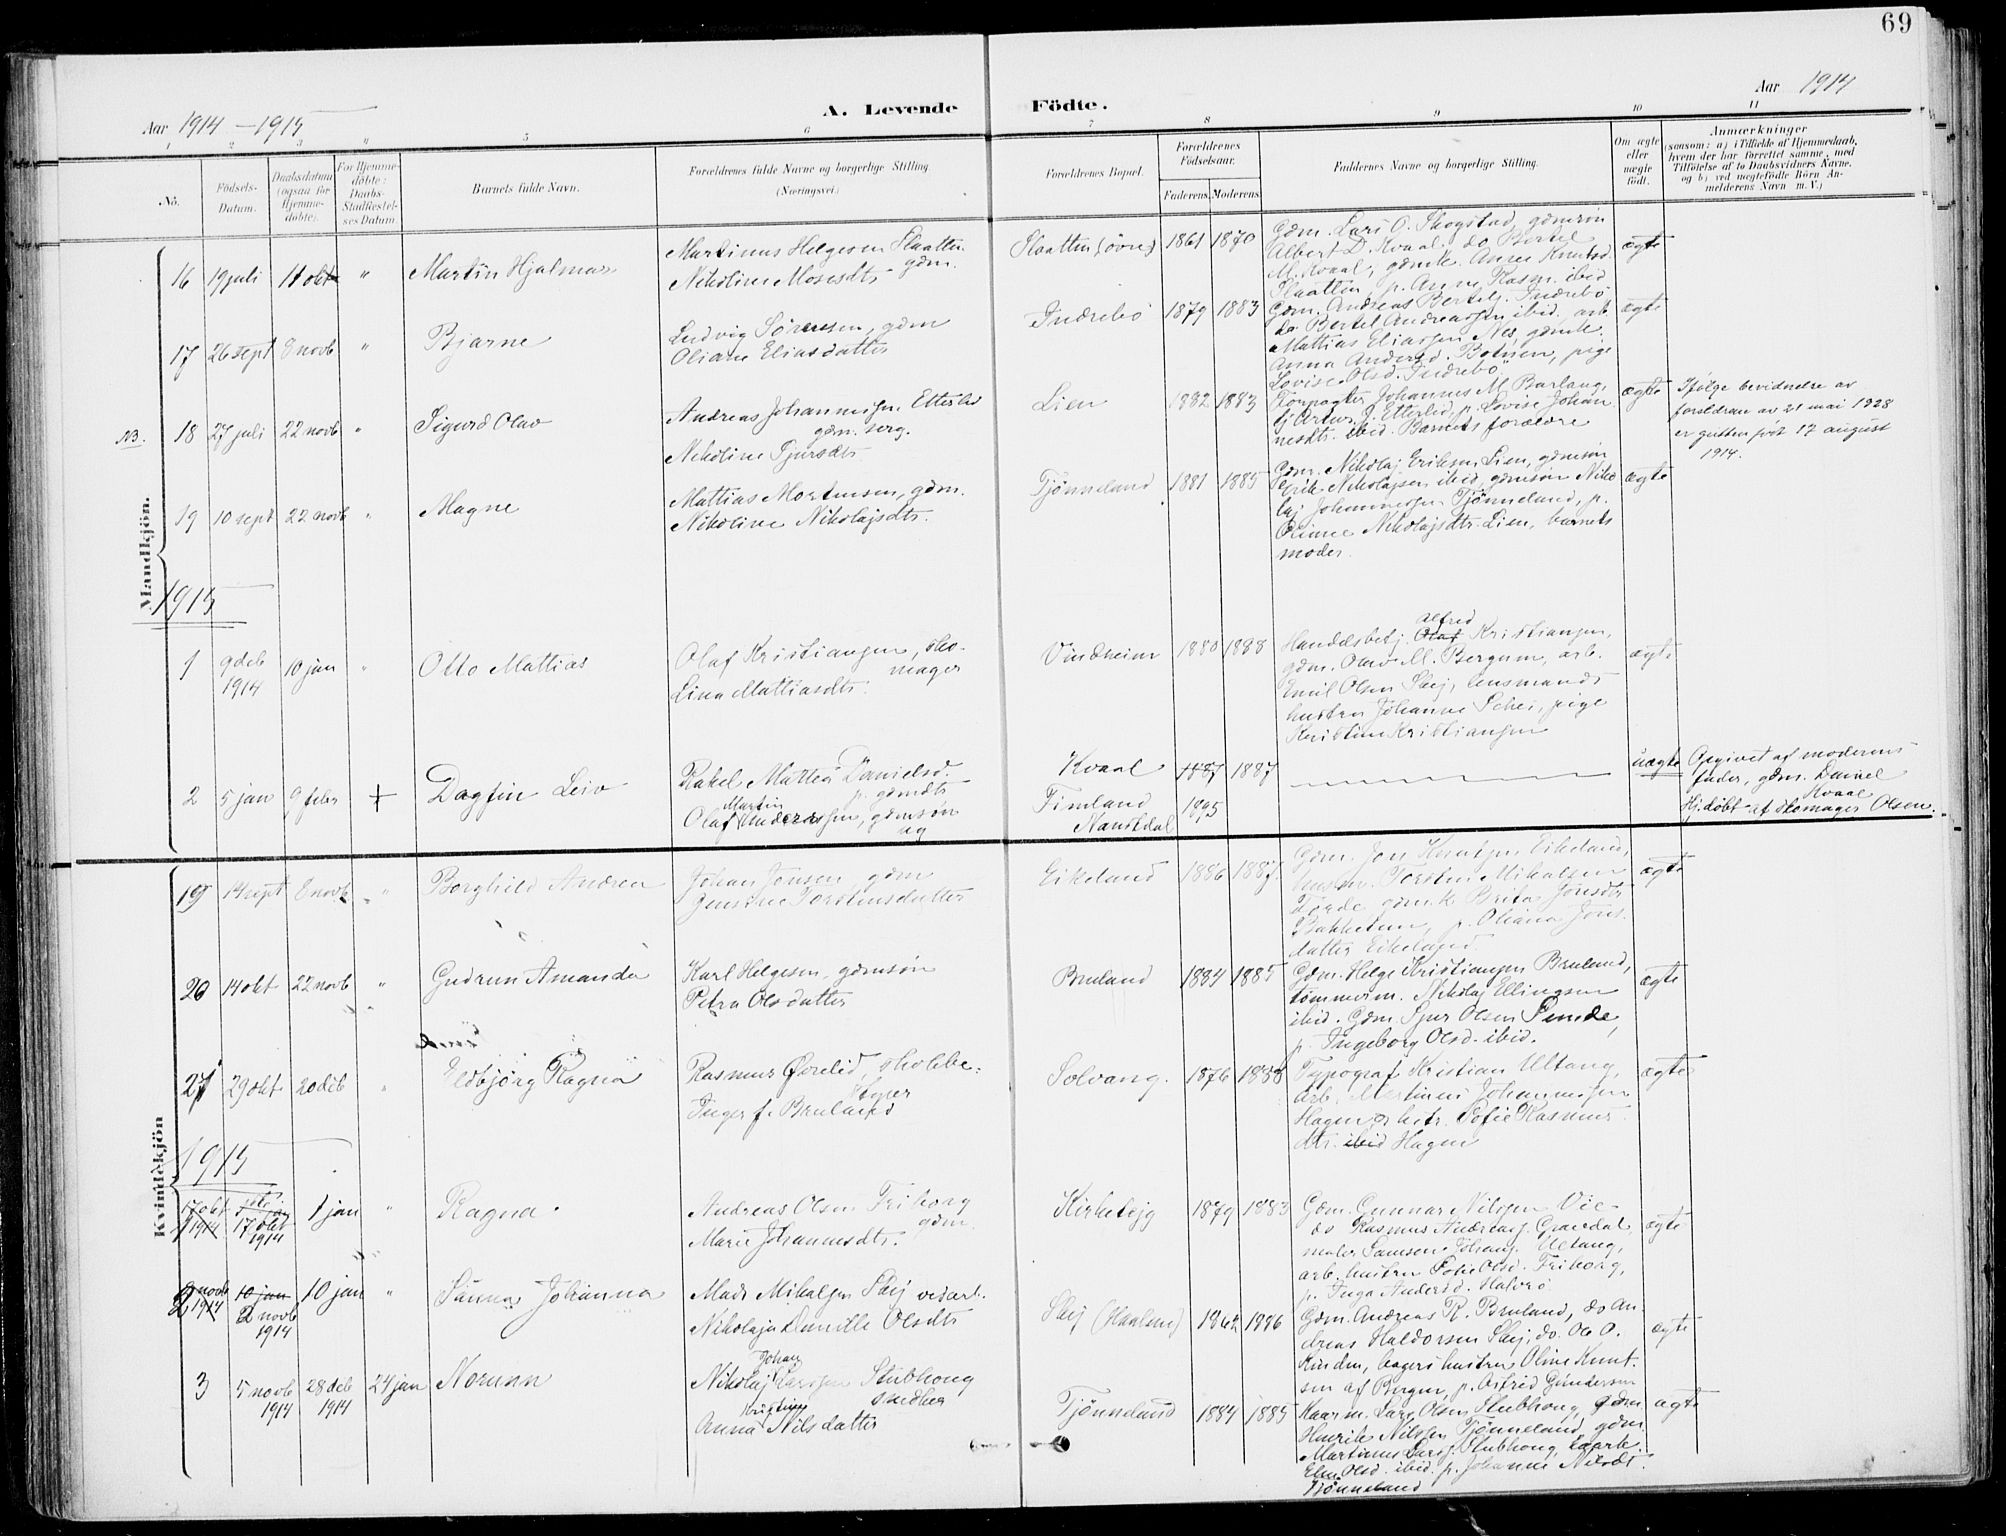 69
Aar 1914
A. Levende Födte.
Aar 1914 - 1915
1 2 3 " 5 6 7 8 9 10 11
No.
Födsels-
Datum.
Daabsdatum
(ogsaa for
Hjemme-
döbte).
For Hjemme-
döbte:
Daabs-
Stadfæstel-
ses Datum
Barnets fulde Navn.
Forældrenes fulde Navne og borgerlige Stilling
(Næringsvei.)
Forældrenes Bopæl.
Forældrenes
Födselsaar.
Faderens. Moderens.
Faddernes Navne og borgerlige Stilling.
Om ægte
eller
uægte
födt.
Anmærkninger
(saasom: a) i Tilfælde af Hjemmedaab,
hvem der har forrettet samme, med
Tilföielse af to Daabsvidners Navne,
og b) ved uægtefödte Börn An-
melderens Navn m. V.)
Mandkjön.
16 19 juli 11 okt " Martin Hjalmar
Martinus Helgesen Slaatten
gdm.
Nikoline Mosesdtr
Slaatten (øvre) 1861 1870
Gdm. Lars O. Skogstad, gdmsøn
Albert D. Kvaal, do Bertel
M. Kvaal, gdmk. Anne Knutsd.
Slaatten, p. Anne Rasm. ibid
ægte
17 26 sept 8 novb " Bjarne
Ludvig Sørensen, gdm
Oliane Eliasdatter
Indrebø 1879 1883
Gdm. Andreas Bertels. Indrebø
do Bertel Andreassen ibid, arb.
Mattias Eliassen Nes, gdmk.
Anna Andersd. Botnen, pige
Lovise Olsd. Indrebø
ægte
NB. 18 27 juli 22 novb " Sigurd Olav
Andreas Johannessen Etterlid
gdm. serg.
Nikoline Sjursdtr
Lien 1882 1883
Forpagter Johannes M. Barlaug,
Etterlid, p. Lovise Johan
nesdtr. ibid. Barnets forældre
ægte
Ifølge bevidnelse av
foreldrene av 21 mai 1928
er gutten født 17 august
1914.
19 10 sept 22 novb " Magne
Mattias Mortensen, gdm.
Nikoline Nikolajsdtr.
Tjønneland 1881 1885
Gdm. Nikolaj Eriksen Lien, gdmsøn
Erik Nikolajsen ibid, gdmsøn Niko
laj Johannessen Tjønneland, p.
Nikolajsdtr. Lien, barnets
moder.
ægte
1915
1 9 deb
1914 10 jan " Otto Mattias
Olaf Kristiansen, sko-
mager
Lina Mattiasdtr.
Vindheim 1880 1898
Alfred
Handelsbetj. Olaf Kristiansen,
gdm. Olav M. Bergum, arb.
Emil Olsen Skej, lensmands
hustru Johanne Schei, pige
Kristine Kristiansen
ægte
2 5 jan 9 febr + Dagfin Leiv
Rakel Mattea Danielsd.
p. gdmdtr
Martin
Olaf Anderssen, gdmsøn
ug
Kvaal 1887 1887
Fimland 1895
Naustdal
uægte
Opgivet af moderens
fader, gdm. Daniel
Kvaal
Hj.døbt af skomager Olsen.
Kvindekjön
19 14 sept 8 novb " Borghild Andrea
Johan Jonsen gdm
Jensine Torstensdatter
Eikeland 1886 1887.
Gdm. Jon Knutsen Eikeland,
husm. Torsten Mikalsen
Førde, gdmk Brita Jonsdtr
Bakketun, p. Oliana Jons
datter Eikeland.
ægte
20 14 okt 22 novb " Gudrun Amanda
Karl Helgesen, gdmsøn
Petra Olsdatter
Bruland 1884 1885
Gdm. Helge Kristiansen Bruland,
tømmerm. Nikolaj Ellingsen
ibid. Gdm. Sjur Olsen Sunde,
p. Ingeborg Olsd. ibid.
ægte
21 29 okt 20 deb " Eldbjørg Ragna
Rasmus Ørelid, skolebe-
styrer
Inger f. Bruland
Solvang. 1876 1888
Typograf Kristian Ultang,
arb. Martinus Johannessen
Hagen, hstr. Sofie Rasmus
dtr. ibid Hagen
ægte
1915
1 17 okt
1914 17 okt
1914 1 jan " Ragna.
Andreas Olsen Friborg
gdm.
Marie Johannesdtr.
Kirketejg 1879 1883
Gdm. Gunnar Nilsen Vie
do Rasmus Andreass. Grovdal
maler Samson Johans. Ultang,
arb. hustru Sofie Olsd. Friborg,
p. Inga Andersd. Halvrø
ægte
2 novb
1914 10 jan
2 novb
1914 10 jan " Sanna Johanna
Mads Mikalsen Skej vejarb.
Nikolaja Danielle Olsdtr
Skej (Haalene) 1862 1886
Gdm. Andreas R. Bruland, do An-
dreas Haldorsen Skej, do. Ole O.
Kinden, bagers hustru Oline Knut-
sen af Bergen, p. Astrid Gundersen
ægte
3 5 novb
1914 28 deb
1914 24 jan Norunn
Johan
Nikolaj Larssen Stubhoug
snedker
Kristine
Anna Nilsdatter
Tjønneland 1884 1885
Kaarm. Lars Olsen Stubhoug, gdm.
Henrik Nilsen Tjønneland, gdm
Martinus Larss. Stubhoug, kaark.
Eline Olsd. ibid. p. Johanne Nilsdt.
Tjønneland
ægte